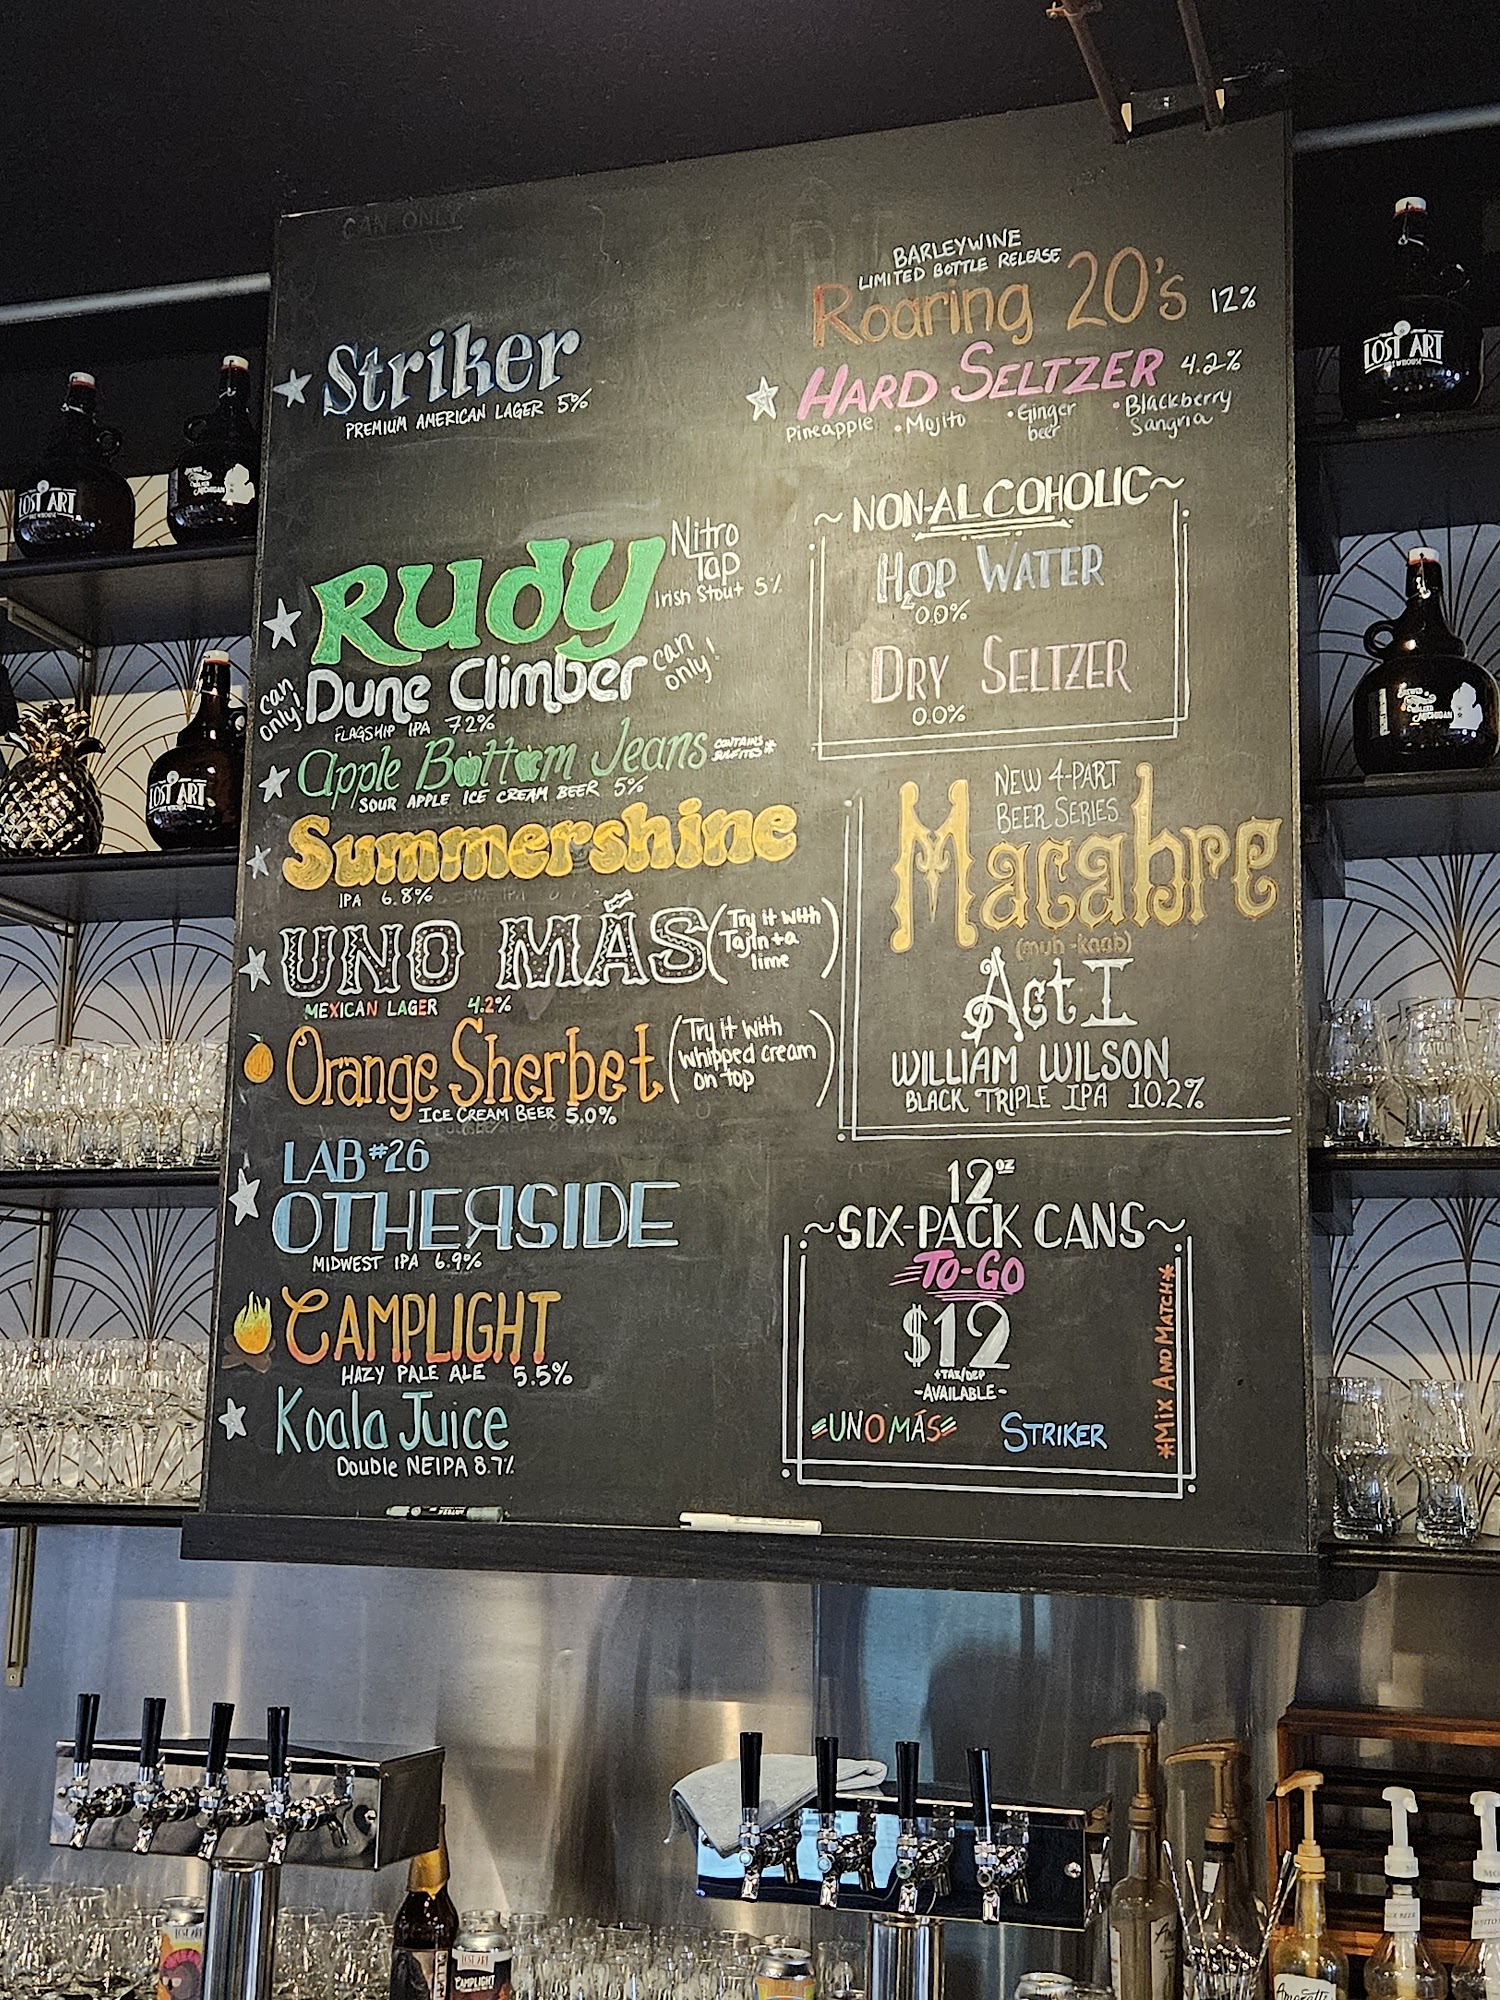 CAN ONLY
Striker
PREMIUM AMERICAN LAGER 5%
Rudy
Nitro
Tap
Irish Stout 5%
can
only!
Dune Climber
can
only!
FLAGSHIP IPA 7.2%
Apple Bottom Jeans
CONTAINS
SULFITES*
SOUR APPLE ICE CREAM BEER 5%
Summershine
IPA 6.8%
UNO MÁS
(Try it with
Tajin + a
lime)
MEXICAN LAGER 4.2%
Orange Sherbet
(Try it with
whipped cream
on top)
ICE CREAM BEER 5.0%
LAB #26
OTHEЯSIDE
MIDWEST IPA 6.9%
CAMPLIGHT
HAZY PALE ALE 5.5%
Koala Juice
Double NEIPA 8.7%
BARLEYWINE
LIMITED BOTTLE RELEASE
Roaring 20's 12%
HARD SELTZER 4.2%
Pineapple • Mojito • Ginger beer • Blackberry Sangria
~ NON-ALCOHOLIC ~
HOP WATER
0.0%
DRY SELTZER
0.0%
NEW 4-PART
BEER SERIES
Macabre
(muh-kaab)
Act I
WILLIAM WILSON
BLACK TRIPLE IPA 10.2%
12oz
~SIX-PACK CANS~
TO-GO
$12
+TAX/DEP
-AVAILABLE-
UNO MÁS STRIKER
*MIX AND MATCH*
LOST ART
LOST ART
LOST ART
BREWHOUSE
LOST ART
CAMPLIGHT
Amoretti